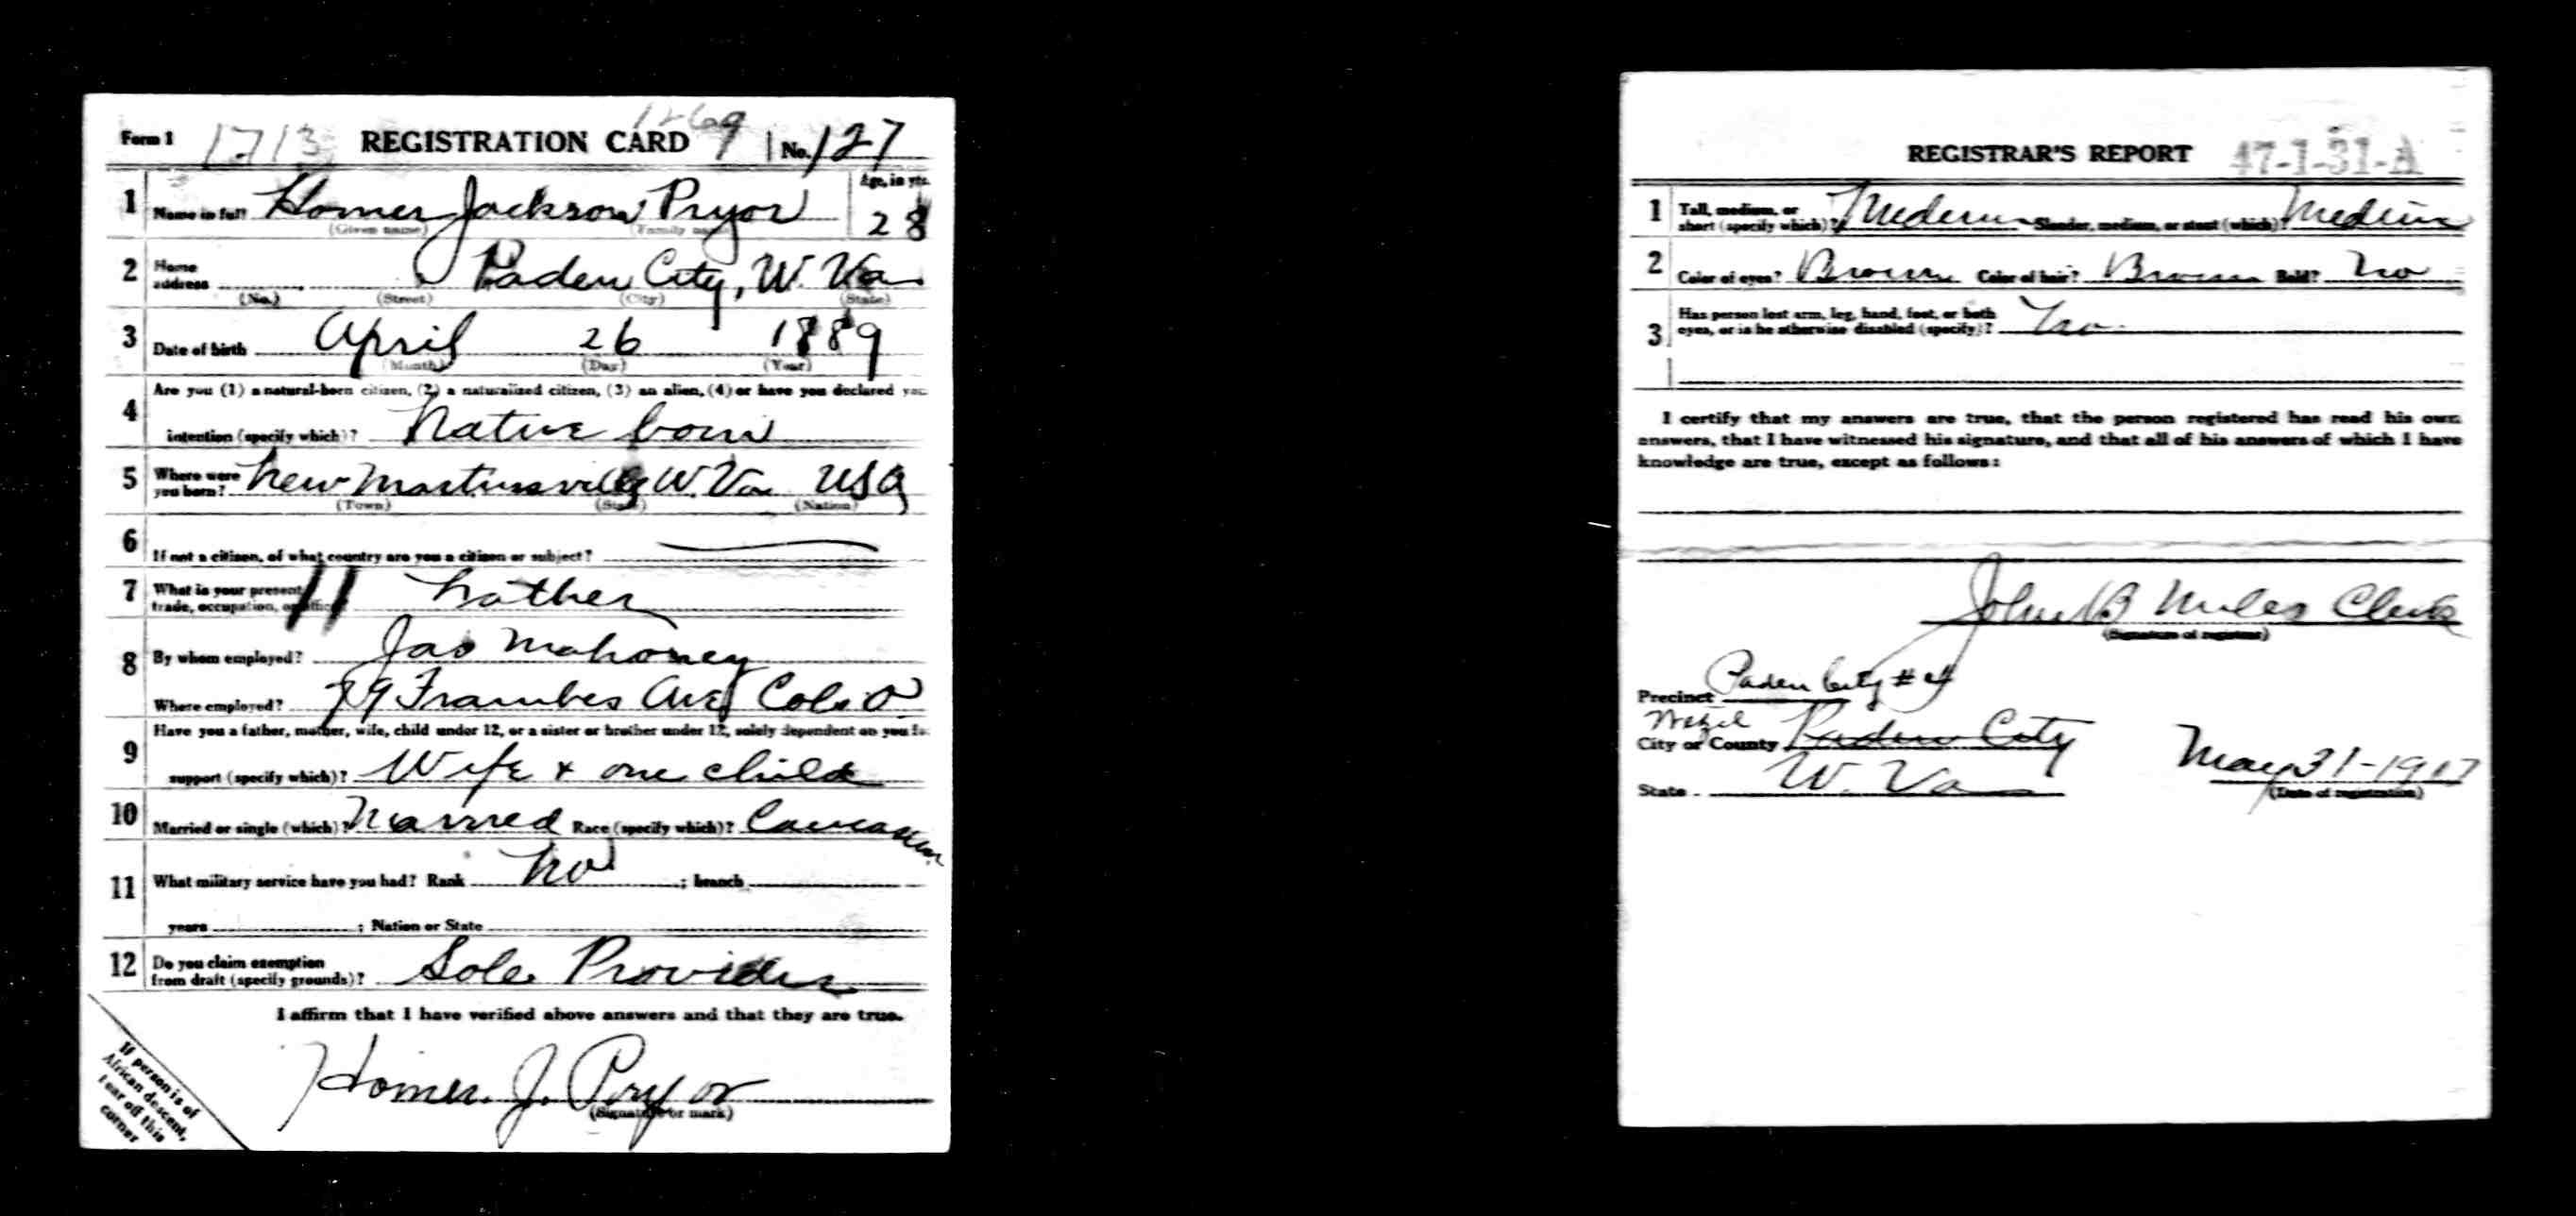 Form 1 1713 REGISTRATION CARD 1269 No. 127
1 Name in full Homer Jackson Pryor Age, in yrs. 28
(Given name) (Family name)
2 Home address Paden City, W. Va
(No.) (Street) (City) (State)
3 Date of birth April 26 1889
(Month) (Day) (Year)
4 Are you (1) a natural-born citizen, (2) a naturalized citizen, (3) an alien, (4) or have you declared your
intention (specify which)? Native born
5 Where were you born? New Martinsville W. Va USA
(Town) (State) (Nation)
6 If not a citizen, of what country are you a citizen or subject?
7 What is your present trade, occupation, or office? Lather
8 By whom employed? Jas Mahoney
Where employed? 79 Frambes Ave Cols O
9 Have you a father, mother, wife, child under 12, or a sister or brother under 12, solely dependent on you for
support (specify which)? Wife + one child
10 Married or single (which)? Married Race (specify which)? Caucasian
11 What military service have you had? Rank No ; branch
years ; Nation or State
12 Do you claim exemption from draft (specify grounds)? Sole Provider
I affirm that I have verified above answers and that they are true.
Homer J. Pryor
(Signature or mark)
If person is of
African descent,
tear off this
corner
REGISTRAR'S REPORT 47-1-31-A
1 Tall, medium, or short (specify which)? Medium Slender, medium, or stout (which)? Medium
2 Color of eyes? Brown Color of hair? Brown Bald? No
3 Has person lost arm, leg, hand, foot, or both
eyes, or is he otherwise disabled (specify)? No
I certify that my answers are true, that the person registered has read his own
answers, that I have witnessed his signature, and that all of his answers of which I have
knowledge are true, except as follows:
John B Miles Clerk
(Signature of registrar)
Precinct Paden City # 4
Wetzel
City or County Paden City May 31-1917
State W. Va (Date of registration)